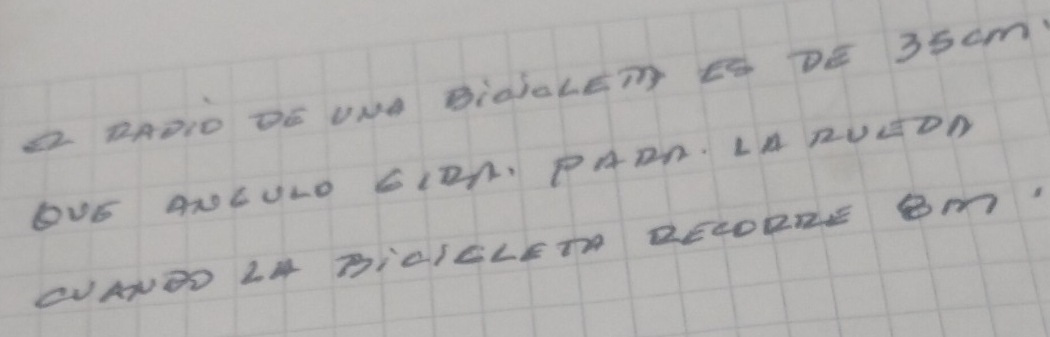 EL RADIO DE UNA BICICLETA ES DE 35cm.
QUE ANGULO GIRA. PARA. LA RUEDA
CUANDO LA BICICLETA RECORRE 8m.